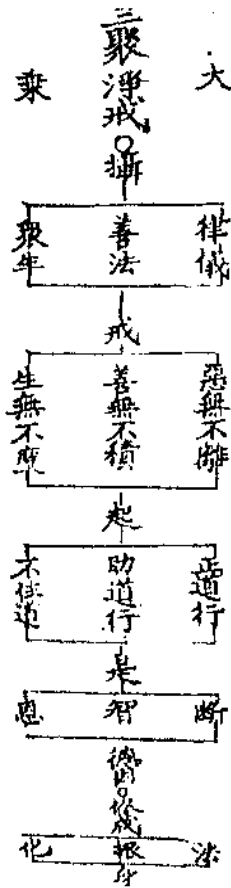 大
三聚淨戒。攝
乘
律儀
善法
眾生
戒
惡無不離
善無不積
生無不度
起
正道行
助道行
不住道
是
斷
智
恩
德因。修成
法
報
化
身